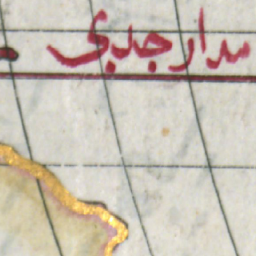 مدار جدی